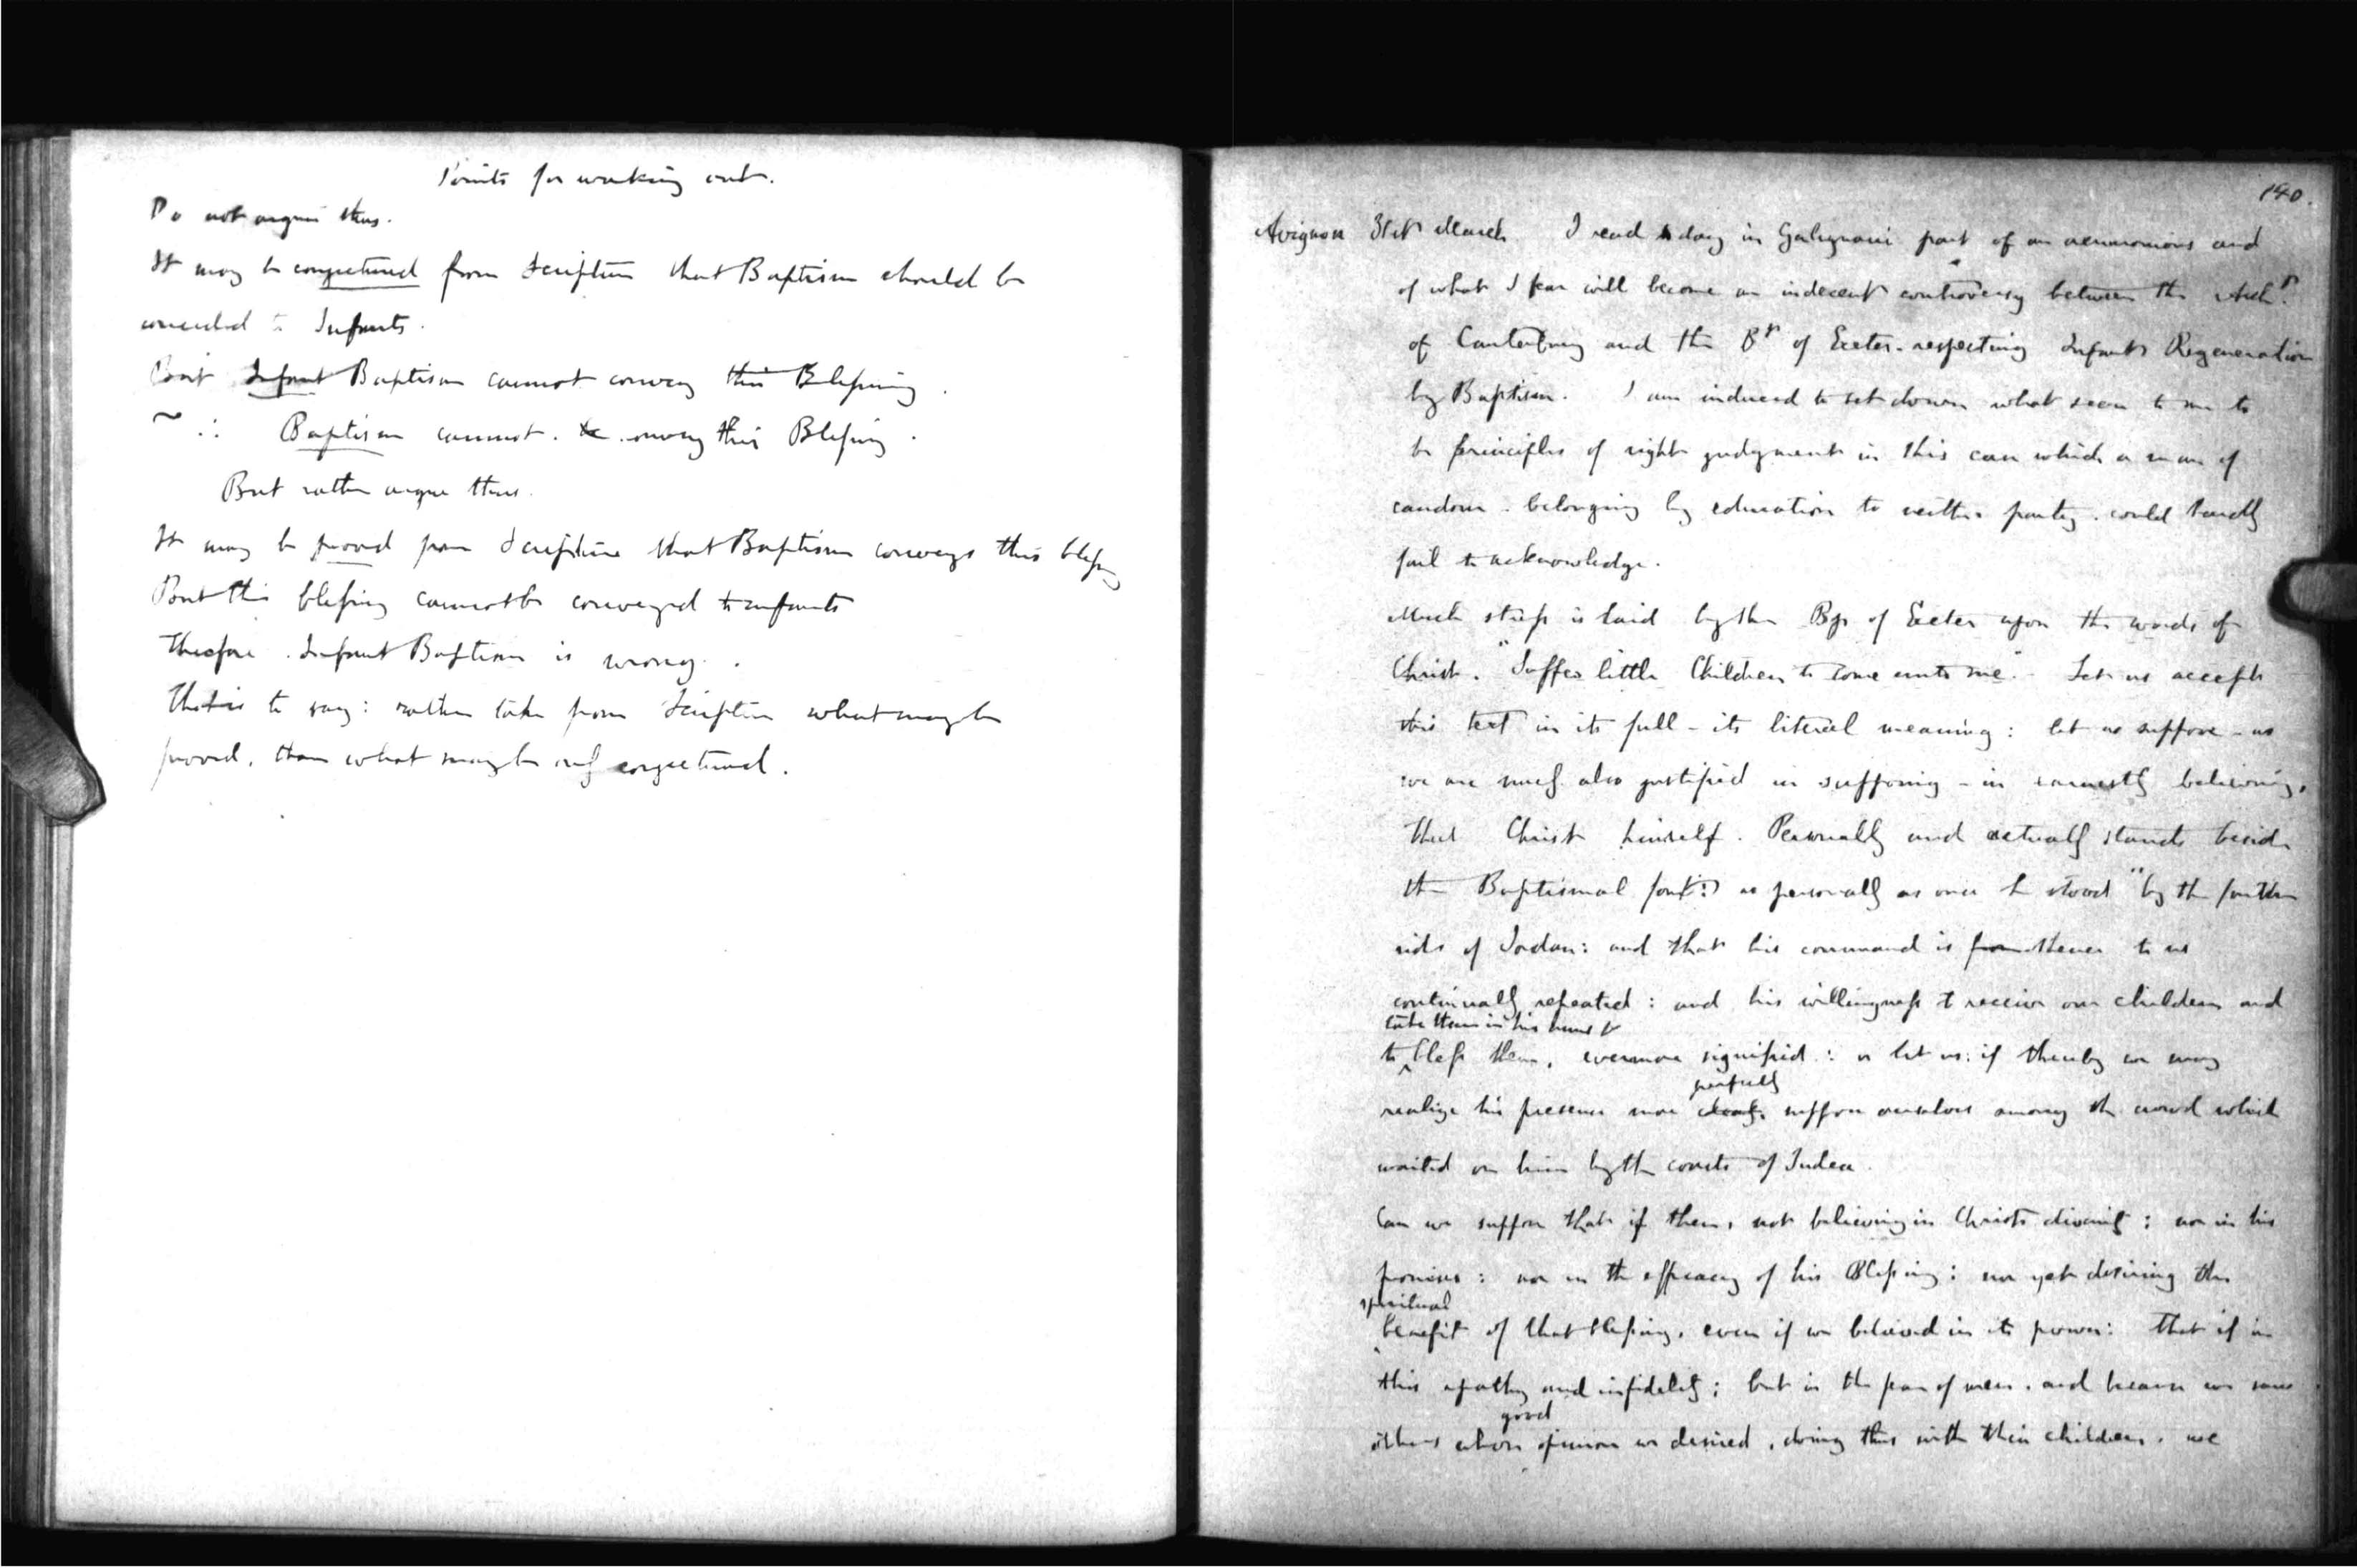 Points for working out.
Do not argue thus.
It may be conjectured from Scripture that Baptism should be
conceded to Infants.
But Infant Baptism cannot convey this Blessing.
∴ Baptism cannot convey this Blessing.
But rather argue thus.
It may be proved from Scripture that Baptism conveys this blessing
But this blessing cannot be conveyed to infants
Therefore. Infant Baptism is wrong.
That is to say: rather take from Scripture what may be
proved, than what may be only conjectured.
140.
Avignon 31st March. I read today in Galignani part of an acrimonious and
of what I fear will become an indecent controversy between the Archp
of Canterbury and the Bp of Exeter. respecting Infants Regeneration
by Baptism. I am induced to set down what seem to me to
be principles of right judgment in this case which a man of
candour. belonging by education to neither party. could hardly
fail to acknowledge.
Much stress is laid by the Bp of Exeter upon the words of
Christ. "Suffer little Children to come unto me." Let us accept
this text in its full - its literal meaning: let us suppose - as
we are surely also justified in supposing - in earnestly believing,
that Christ himself. Personally and actually stands beside
the Baptismal font: as personally as once he stood "by the farther
side of Jordan: and that his command is from thence to us
continually repeated: and his willingness to receive our children and
take them in his arms &
to bless them, evermore signified: or let us: if thereby we may
perfectly
realize his presence more clearly, suppose ourselves among the crowd which
waited on him by the coasts of Judea.
Can we suppose that if then, not believing in Christs divinity: nor in his
promises: nor in the efficacy of his Blessing: nor yet desiring the
spiritual
benefit of that blessing, even if we believed in its power: that if in
this apathy and infidelity; but in the fear of men. and because we saw
good
others whose opinion we desired, doing thus with their children. we